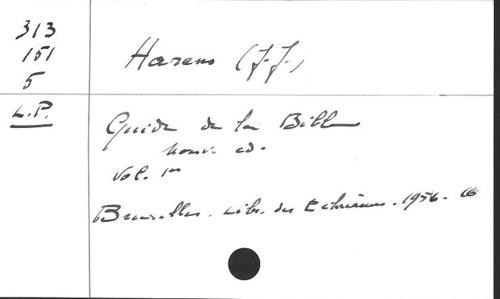 313
151
5
L.P.
Harens (J.-J.)
Guide de la Bible
nouv. ed.
Vol. 1er
Bruxelles. Libr. des 1956.